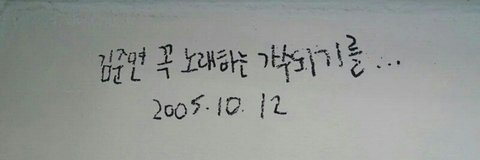 김준면 꼭 노래하는 가수되기를...
2005.10.12